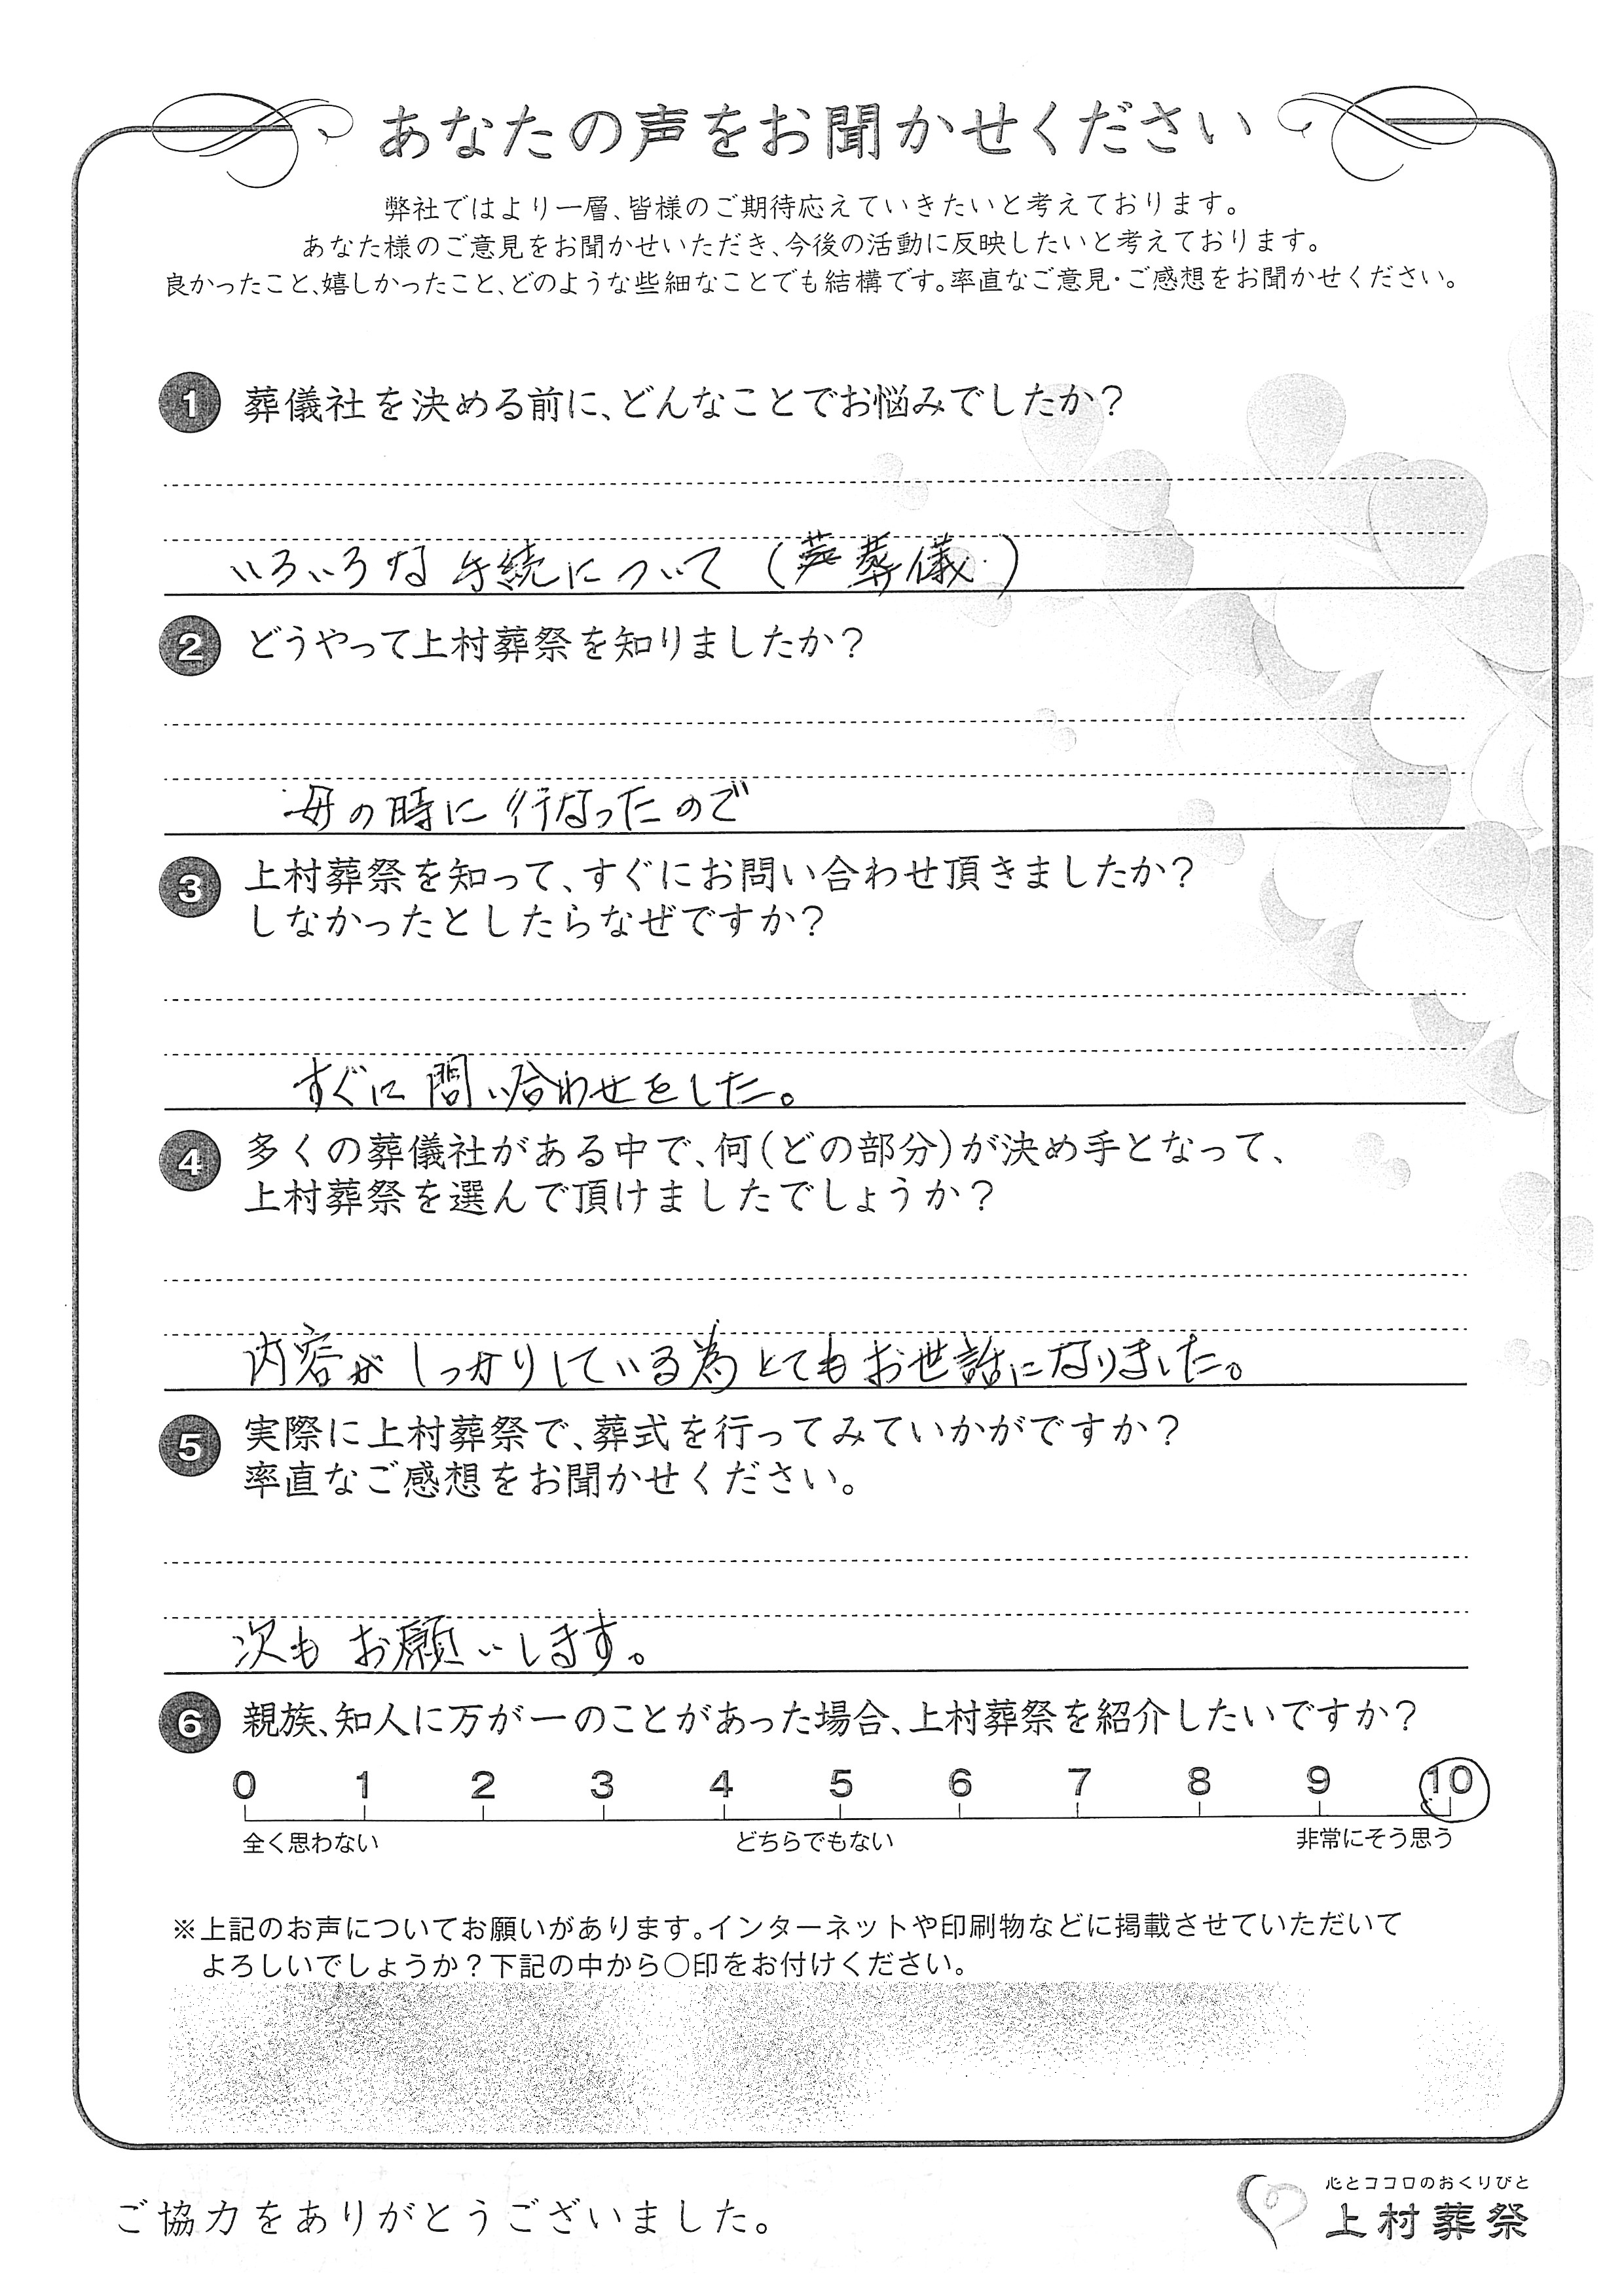 あなたの声をお聞かせください
弊社ではより一層、皆様のご期待応えていきたいと考えております。
あなた様のご意見をお聞かせいただき、今後の活動に反映したいと考えております。
良かったこと、嬉しかったこと、どのような些細なことでも結構です。率直なご意見・ご感想をお聞かせください。
1 葬儀社を決める前に、どんなことでお悩みでしたか？
いろいろな手続について（葬儀）
2 どうやって上村葬祭を知りましたか？
母の時に行なったので
3 上村葬祭を知って、すぐにお問い合わせ頂きましたか？
しなかったとしたらなぜですか？
すぐに問い合わせをした。
4 多くの葬儀社がある中で、何（どの部分）が決め手となって、
上村葬祭を選んで頂けましたでしょうか？
内容がしっかりしている為とてもお世話になりました。
5 実際に上村葬祭で、葬式を行ってみていかがですか？
率直なご感想をお聞かせください。
次もお願いします。
6 親族、知人に万が一のことがあった場合、上村葬祭を紹介したいですか？
0 1 2 3 4 5 6 7 8 9 10
全く思わない どちらでもない 非常にそう思う
※上記のお声についてお願いがあります。インターネットや印刷物などに掲載させていただいて
よろしいでしょうか？下記の中から〇印をお付けください。
ご協力をありがとうございました。
心とココロのおくりびと
上村葬祭